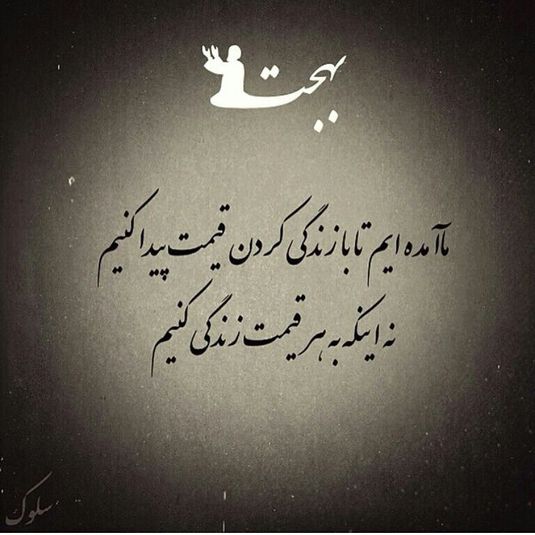 بهجت
ما آمده ایم تا با زندگی کردن قیمت پیدا کنیم
نه اینکه به هر قیمت زندگی کنیم
سلوک